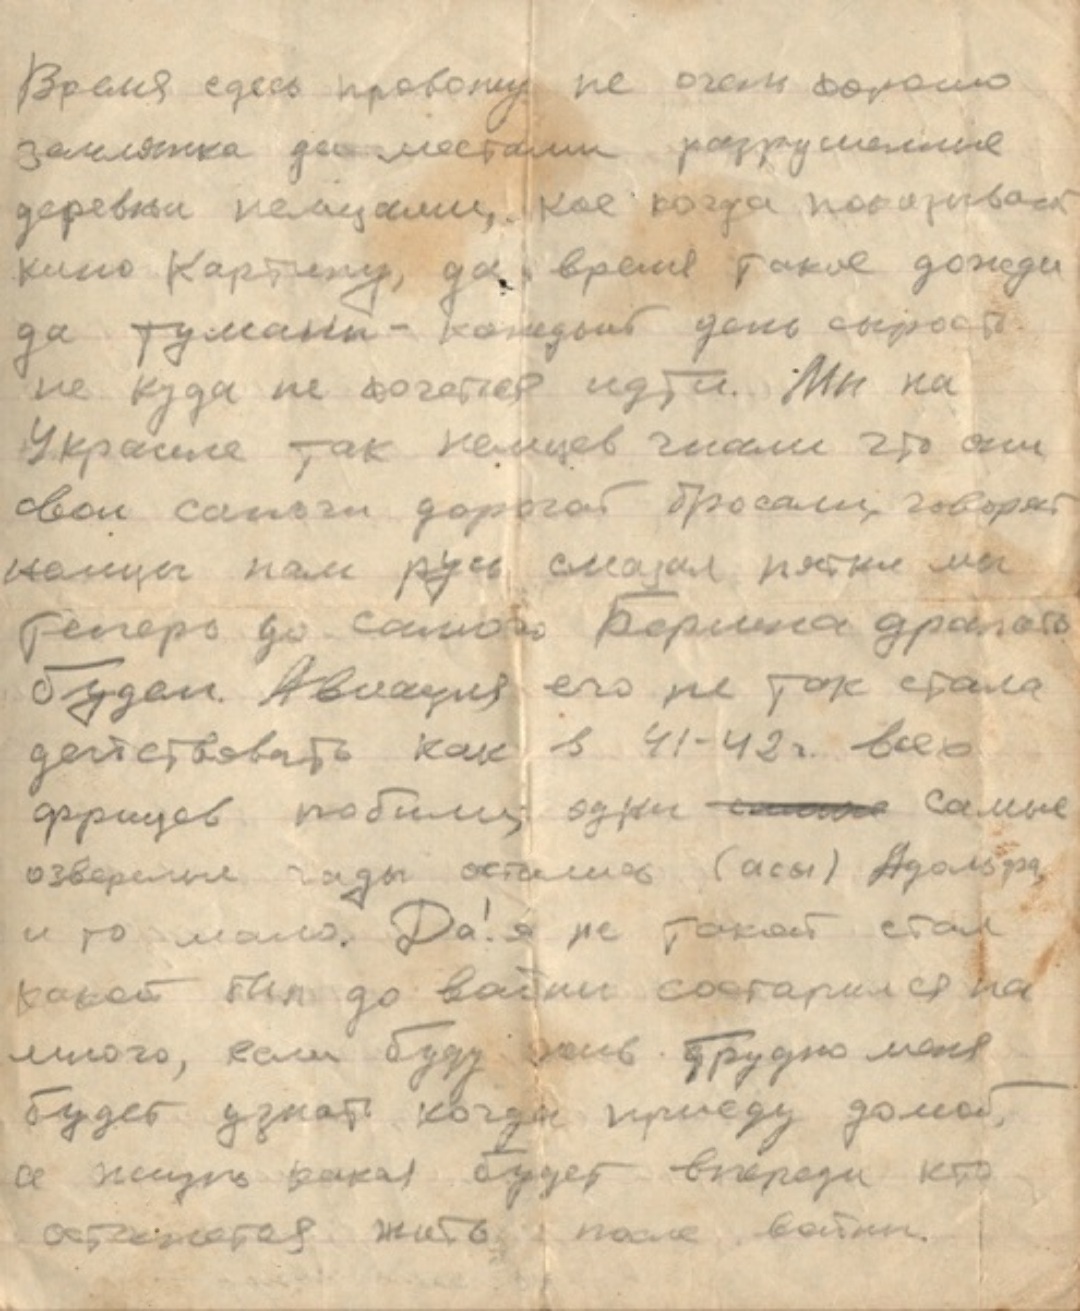 Время сдесь провожу не очень хорошо
землянка да местами разрушенные
деревни немцами, кое когда показывают
кино картину, да время такое дожди
да туманы - каждый день сырость
не куда не хочется идти. Мы на
Украине так немцев гнали что они
свои сапоги дорогой бросали, говорят
немцы нам русь смазал пятки мы
теперь до самого Берлина драпать
будем. Авиация его не так стала
действовать как в 41-42г. всех
фрицев побили, одни самые
озверелые гады остались (асы) Адольфа,
и то мало. Да! я не такой стал
какой был до войны состарился на
много, если буду жив трудно меня
будет узнать когда приеду домой,
а жизнь какая будет впереди кто
останется жить после войны.